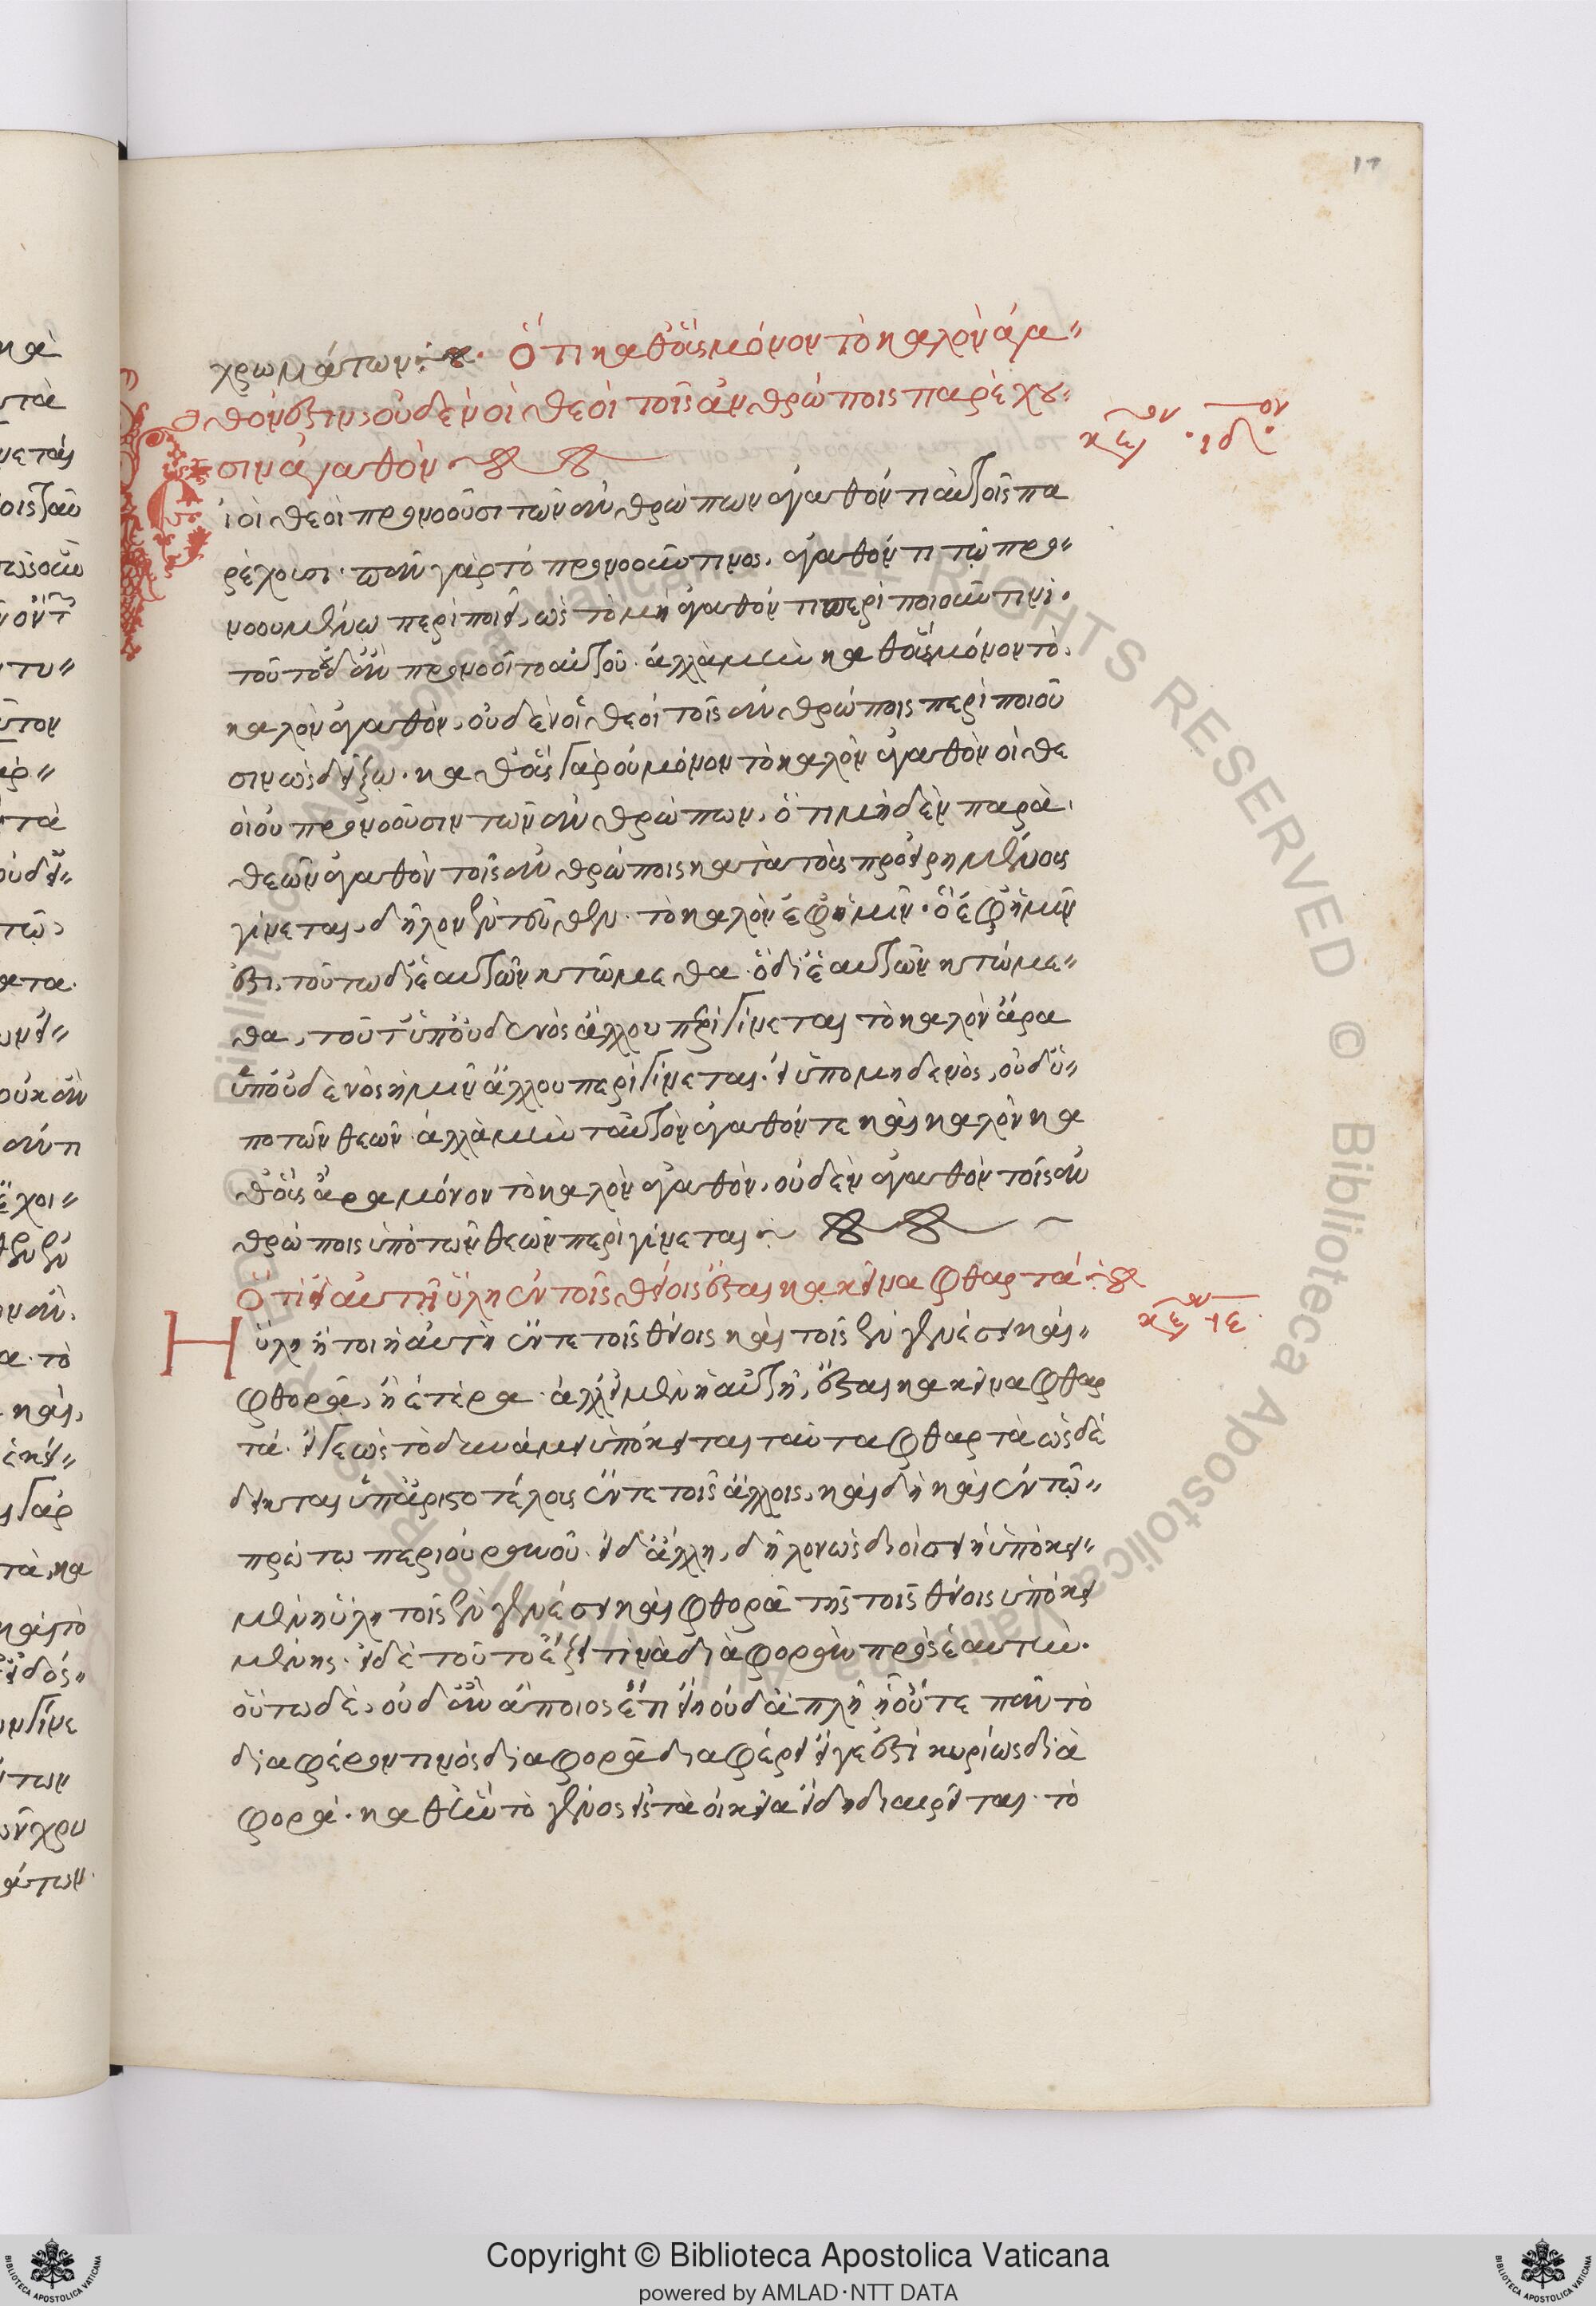 17
χρωμάτων. Ὅτι καθ' οὓς μόνον τὸ καλὸν ἀγα"
θόν ἐστιν, οὐδὲν οἱ θεοὶ τοῖς ἀνθρώποις παρέχου"
σιν ἀγαθόν
κεφάλαιον ιδον
ἱ οἱ θεοὶ προνοοῦσι τῶν ἀνθρώπων ἀγαθόν τι αὐτοῖς πα
ρέχουσι. πᾶν γὰρ τὸ προνοοῦν τινος, ἀγαθόν τι τῷ προ"
νοουμένω περιποιεῖ, ὡς τὸ μὴ ἀγαθόν τι περιποιοῦν τινὶ.
τοῦτο δ' ἂν προνοοῖτο αὐτοῦ. ἀλλὰ μὴν καθ' οὓς μόνον τὸ
καλὸν ἀγαθὸν, οὐδὲν οἱ θεοὶ τοῖς ἀνθρώποις περιποιοῦ
σιν ὡς δείξω. καθ' οὓς γὰρ οὐ μόνον τὸ καλὸν ἀγαθὸν οἱ θε
οὶ οὐ προνοοῦσιν τῶν ἀνθρώπων, ὅτι μηδὲν παρὰ
θεῶν ἀγαθὸν τοῖς ἀνθρώποις κατὰ τοὺς προειρημένους
γίνεται, δῆλον ἐντεῦθεν. τὸ καλὸν ἐφ' ἡμῖν. ὃ ἐφ' ἡμῖν
ἐστι, τοῦτω δι' ἑαυτῶν κτώμεθα. ὃ δι' ἑαυτῶν κτώμε"
θα, τοῦτ' ὑπ' οὐδενὸς ἄλλου περιγίνεται τὸ καλὸν ἄρα
ὑπ' οὐδενὸς ἡμῖν ἄλλου περιγίνεται. εἰ ὑπο μηδενὸς, οὐδ' ὑ"
πο τῶν θεῶν. ἀλλὰ μὴν ταὐτὸν ἀγαθόν τε καὶ καλὸν κα
θ' οὓς ἄρα μόνον τὸ καλὸν ἀγαθὸν, οὐδὲν ἀγαθὸν τοῖς ἀν
θρώποις ὑπὸ τῶν θεῶν περιγίνεται
Ὅτι εἰ αὐτὴ ὕλη ἐν τοῖς θείοις ἔσται κακεῖνα φθαρτά
κεφάλαιον ιε
Ἡ ὕλη ἤτοι ἡ αὐτὴ ἔν τε τοῖς θείοις καὶ τοῖς ἐν γενέσει καὶ"
φθορᾷ, ἢ ἑτέρα. ἀλλ' εἰ μὲν ἡ αὐτὴ, ἔσται κακεῖνα φθαρ
τά. εἴ γε ὡς τὸ δυνάμει ὑπόκειται ταῦτα φθαρτὰ ὡς δέ
δεικται ὑπ' ἀριστοτέλους ἔν τε τοῖς ἄλλοις, καὶ δὴ καὶ ἐν τῶ"
πρώτω περι οὐρανοῦ. εἰ δ' ἄλλη, δῆλον ὡς διοίσει ἡ ὑποκει"
μένη ὕλη τοῖς ἐν γενέσει καὶ φθορᾷ τῆς τοῖς θείοις ὑποκει
μένης. εἰ δὲ τοῦτο ἕξει τινὰ διαφορὰν πρὸς ἑαυτὴν.
οὕτω δὲ, οὐδ' ἂν ἄποιος ἔτι εἴη οὐδ' ἁπλῆ ἢ οὔτε πᾶν τὸ
διαφέρον τινὸς διαφορᾷ διαφέρει εἴ γε ἐστὶ κυρίως δια
φορά. καθ' ἣν τὸ γένος εἰς τὰ οἰκεῖα εἴδη διαιρεῖται. τὸ
Copyright © Biblioteca Apostolica Vaticana
powered by AMLAD·NTT DATA